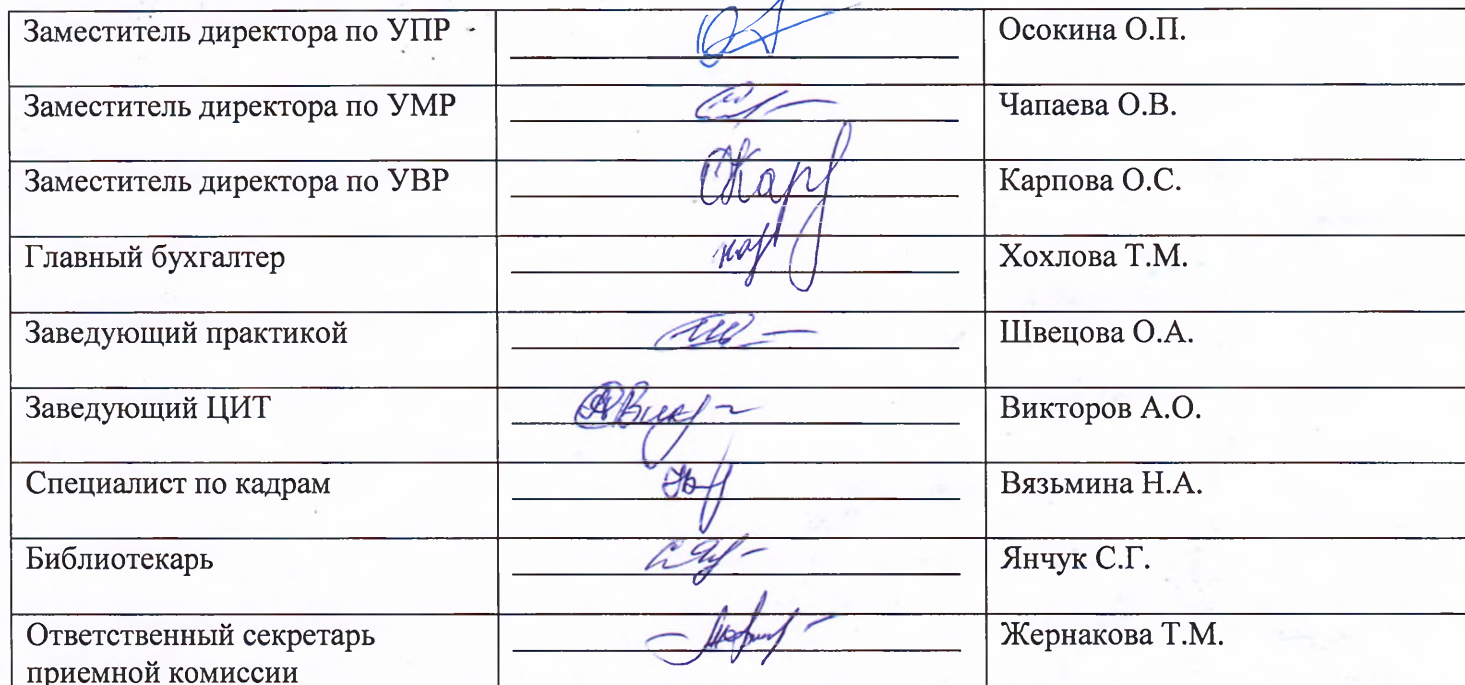 Заместитель директора по УПР
Осокина О.П.
Заместитель директора по УМР
Чапаева О.В.
Заместитель директора по УВР
Карпова О.С.
Главный бухгалтер
Хохлова Т.М.
Заведующий практикой
Швецова О.А.
Заведующий ЦИТ
Викторов А.О.
Специалист по кадрам
Вязьмина Н.А.
Библиотекарь
Янчук С.Г.
Ответственный секретарь
приемной комиссии
Жернакова Т.М.